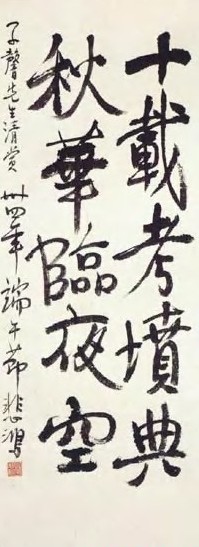 十載考墳典
秋華臨夜空
子馨先生清赏 卅四年端午節 悲鴻